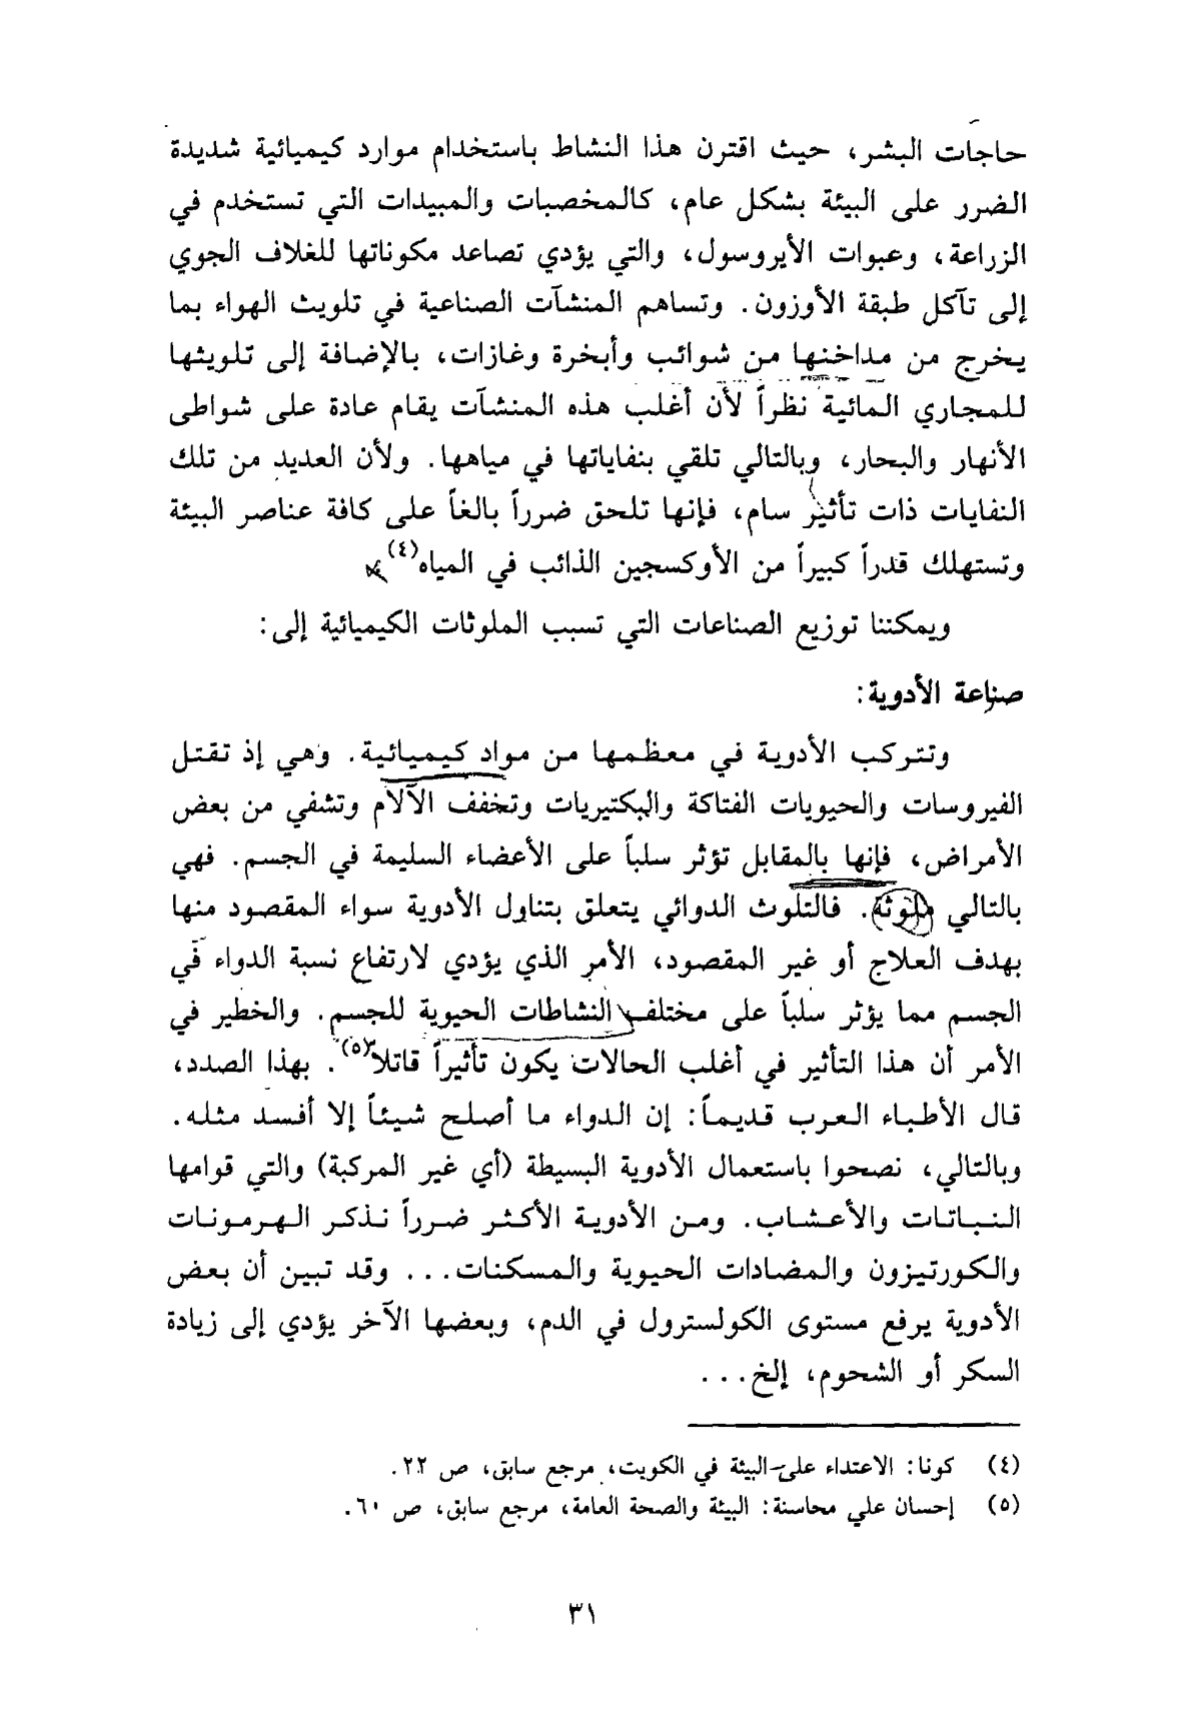 حاجات البشر، حيث اقترن هذا النشاط باستخدام موارد كيميائية شديدة
الضرر على البيئة بشكل عام، كالمخصبات والمبيدات التي تستخدم في
الزراعة، وعبوات الأيروسول، والتي يؤدي تصاعد مكوناتها للغلاف الجوي
إلى تآكل طبقة الأوزون. وتساهم المنشآت الصناعية في تلويث الهواء بما
يخرج من مداخنها من شوائب وأبخرة وغازات، بالإضافة إلى تلويثها
للمجاري المائية نظراً لأن أغلب هذه المنشآت يقام عادة على شواطى
الأنهار والبحار، وبالتالي تلقي بنفاياتها في مياهها. ولأن العديد من تلك
النفايات ذات تأثير سام، فإنها تلحق ضرراً بالغاً على كافة عناصر البيئة
وتستهلك قدراً كبيراً من الأوكسجين الذائب في المياه(٤)
ويمكننا توزيع الصناعات التي تسبب الملوثات الكيميائية إلى:
صناعة الأدوية:
وتتركب الأدوية في معظمها من مواد كيميائية. وهي إذ تقتل
الفيروسات والحيويات الفتاكة والبكتيريات وتخفف الآلام وتشفي من بعض
الأمراض، فإنها بالمقابل تؤثر سلباً على الأعضاء السليمة في الجسم. فهي
بالتالي ملوثة. فالتلوث الدوائي يتعلق بتناول الأدوية سواء المقصود منها
بهدف العلاج أو غير المقصود، الأمر الذي يؤدي لارتفاع نسبة الدواء في
الجسم مما يؤثر سلباً على مختلف النشاطات الحيوية للجسم. والخطير في
الأمر أن هذا التأثير في أغلب الحالات يكون تأثيراً قاتلاً(٥). بهذا الصدد،
قال الأطباء العرب قديماً: إن الدواء ما أصلح شيئاً إلا أفسد مثله.
وبالتالي، نصحوا باستعمال الأدوية البسيطة (أي غير المركبة) والتي قوامها
النباتات والأعشاب. ومن الأدوية الأكثر ضرراً نذكر الهرمونات
والكورتيزون والمضادات الحيوية والمسكنات... وقد تبين أن بعض
الأدوية يرفع مستوى الكولسترول في الدم، وبعضها الآخر يؤدي إلى زيادة
السكر أو الشحوم، إلخ...
(٤) كونا: الاعتداء على البيئة في الكويت، مرجع سابق، ص ٢٢.
(٥) إحسان علي محاسنة: البيئة والصحة العامة، مرجع سابق، ص ٦٠.
٣١